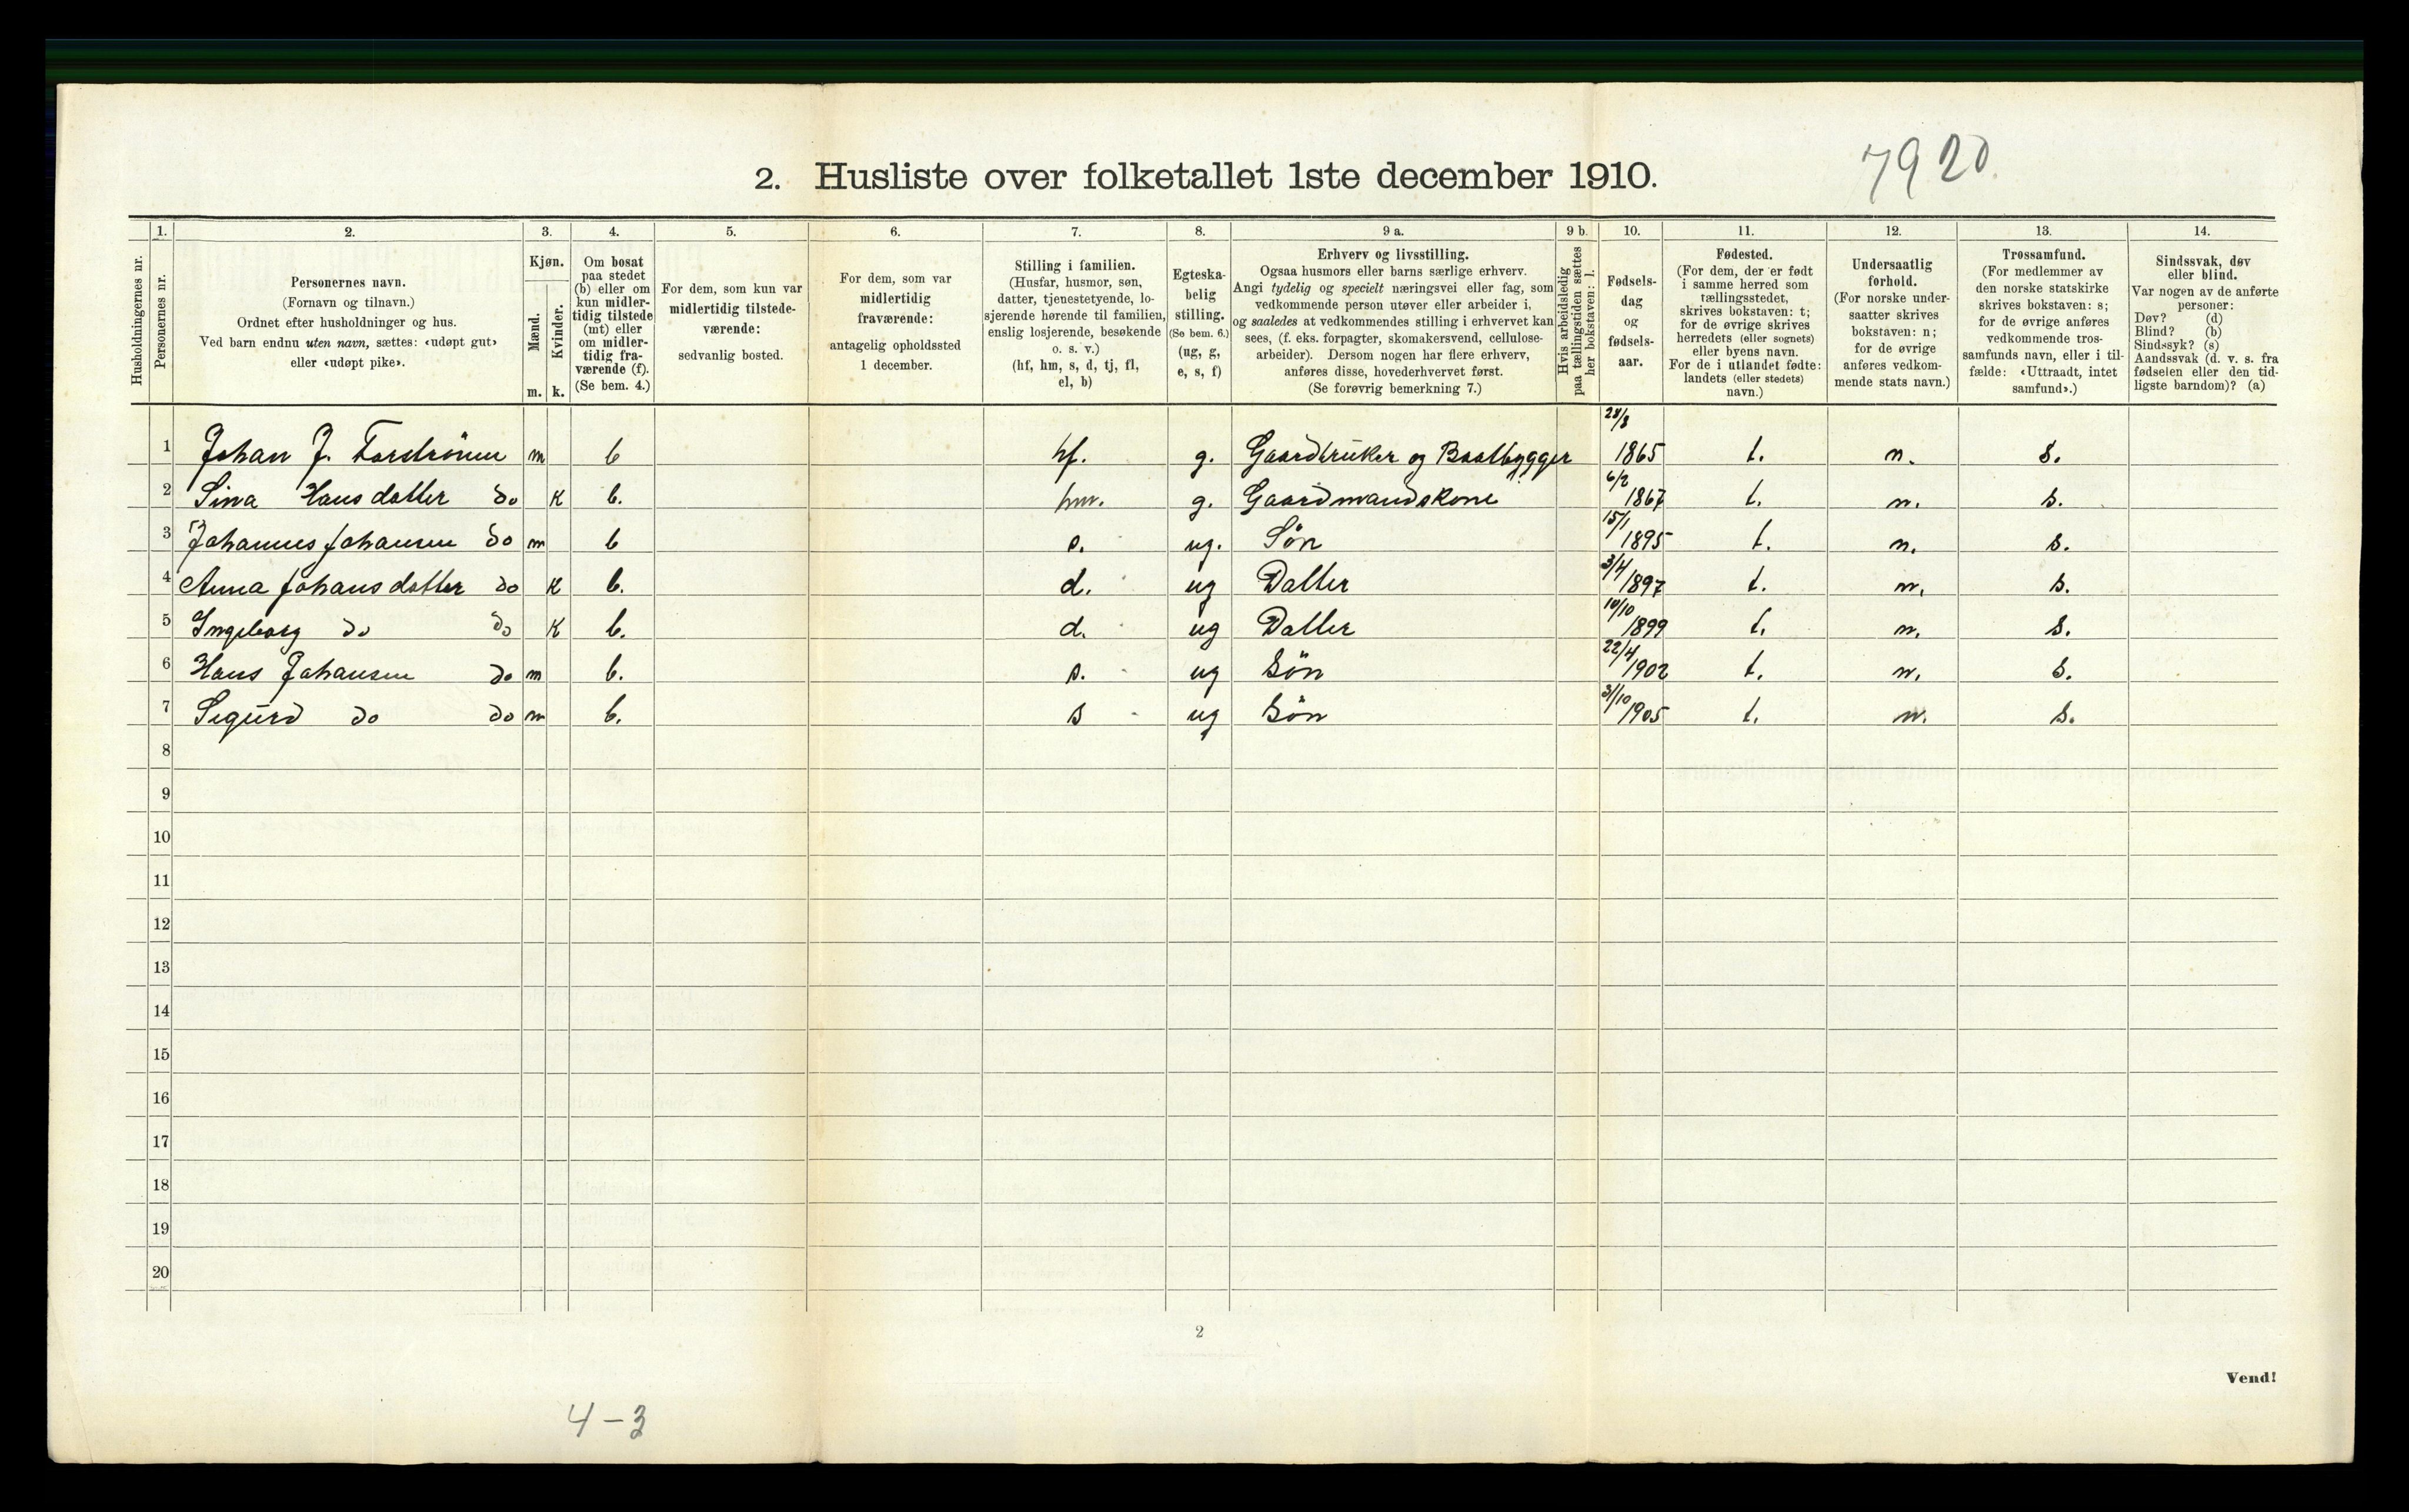 7920
2. Husliste over folketallet 1ste december 1910.
Husholdningernes nr.
1.
Personernes nr.
2.
Personernes navn.
(Fornavn og tilnavn.)
Ordnet efter husholdninger og hus.
Ved barn endnu uten navn, sættes: «udøpt gut»
eller «udøpt pike».
3.
Kjøn.
Mænd.
Kvinder.
m. k.
4.
Om bosat
paa stedet
(b) eller om
kun midler-
tidig tilstede
(mt) eller
om midler-
tidig fra-
værende (f).
(Se bem. 4.)
5.
For dem, som kun var
midlertidig tilstede-
værende:
sedvanlig bosted.
6.
For dem, som var
midlertidig
fraværende:
antagelig opholdssted
1 december.
7.
Stilling i familien.
(Husfar, husmor, søn,
datter, tjenestetyende, lo-
sjerende hørende til familien,
enslig losjerende, besøkende
o. s. v.)
(hf, hm, s, d, tj, fl,
el, b)
8.
Egteska-
belig
stilling.
(Se bem. 6.)
(ug, g,
e, s, f)
9 a.
Erhverv og livsstilling.
Ogsaa husmors eller barns særlige erhverv.
Angi tydelig og specielt næringsvei eller fag, som
vedkommende person utøver eller arbeider i,
og saaledes at vedkommendes stilling i erhvervet kan
sees, (f. eks. forpagter, skomakersvend, cellulose-
arbeider). Dersom nogen har flere erhverv,
anføres disse, hovederhvervet først.
(Se forøvrig bemerkning 7.)
9 b.
Hvis arbeidsledig
paa tællingstiden sættes
her bokstaven: l.
10.
Fødsels-
dag
og
fødsels-
aar.
11.
Fødested.
(For dem, der er født
i samme herred som
tællingsstedet,
skrives bokstaven: t;
for de øvrige skrives
herredets (eller sognets)
eller byens navn.
For de i utlandet fødte:
landets (eller stedets)
navn.)
12.
Undersaatlig
forhold.
(For norske under-
saatter skrives
bokstaven: n;
for de øvrige
anføres vedkom-
mende stats navn.)
13.
Trossamfund.
(For medlemmer av
den norske statskirke
skrives bokstaven: s;
for de øvrige anføres
vedkommende tros-
samfunds navn, eller i til-
fælde: «Uttraadt, intet
samfund».)
14.
Sindssvak, døv
eller blind.
Var nogen av de anførte
personer:
Døv? (d)
Blind? (b)
Sindssyk? (s)
Aandssvak (d. v. s. fra
fødselen eller den tid-
ligste barndom)? (a)
1 Johan J. Forströnen m b hf. g. Gaardbruker og Baatbygger 28/8 1865 t. n. s.
2 Sina Hansdatter do k b. hm. g. Gaardmandskone 6/2 1867 t. n. s.
3 Johannes Johansen do m b s. ug. Sön 15/1 1895 t. n. s.
4 Anna Johansdatter do k b. d. ug Datter 3/4 1897 t. n. s.
5 Ingeborg do do k b. d. ug Datter 10/10 1899 t. n. s.
6 Hans Johansen do m b. s. ug Sön 22/4 1902 t. n. s.
7 Sigurd do do m b. s ug Sön 31/10 1905 t. n. s.
8
9
10
11
12
13
14
15
16
17
18
19
20
2
Vend!
4-3